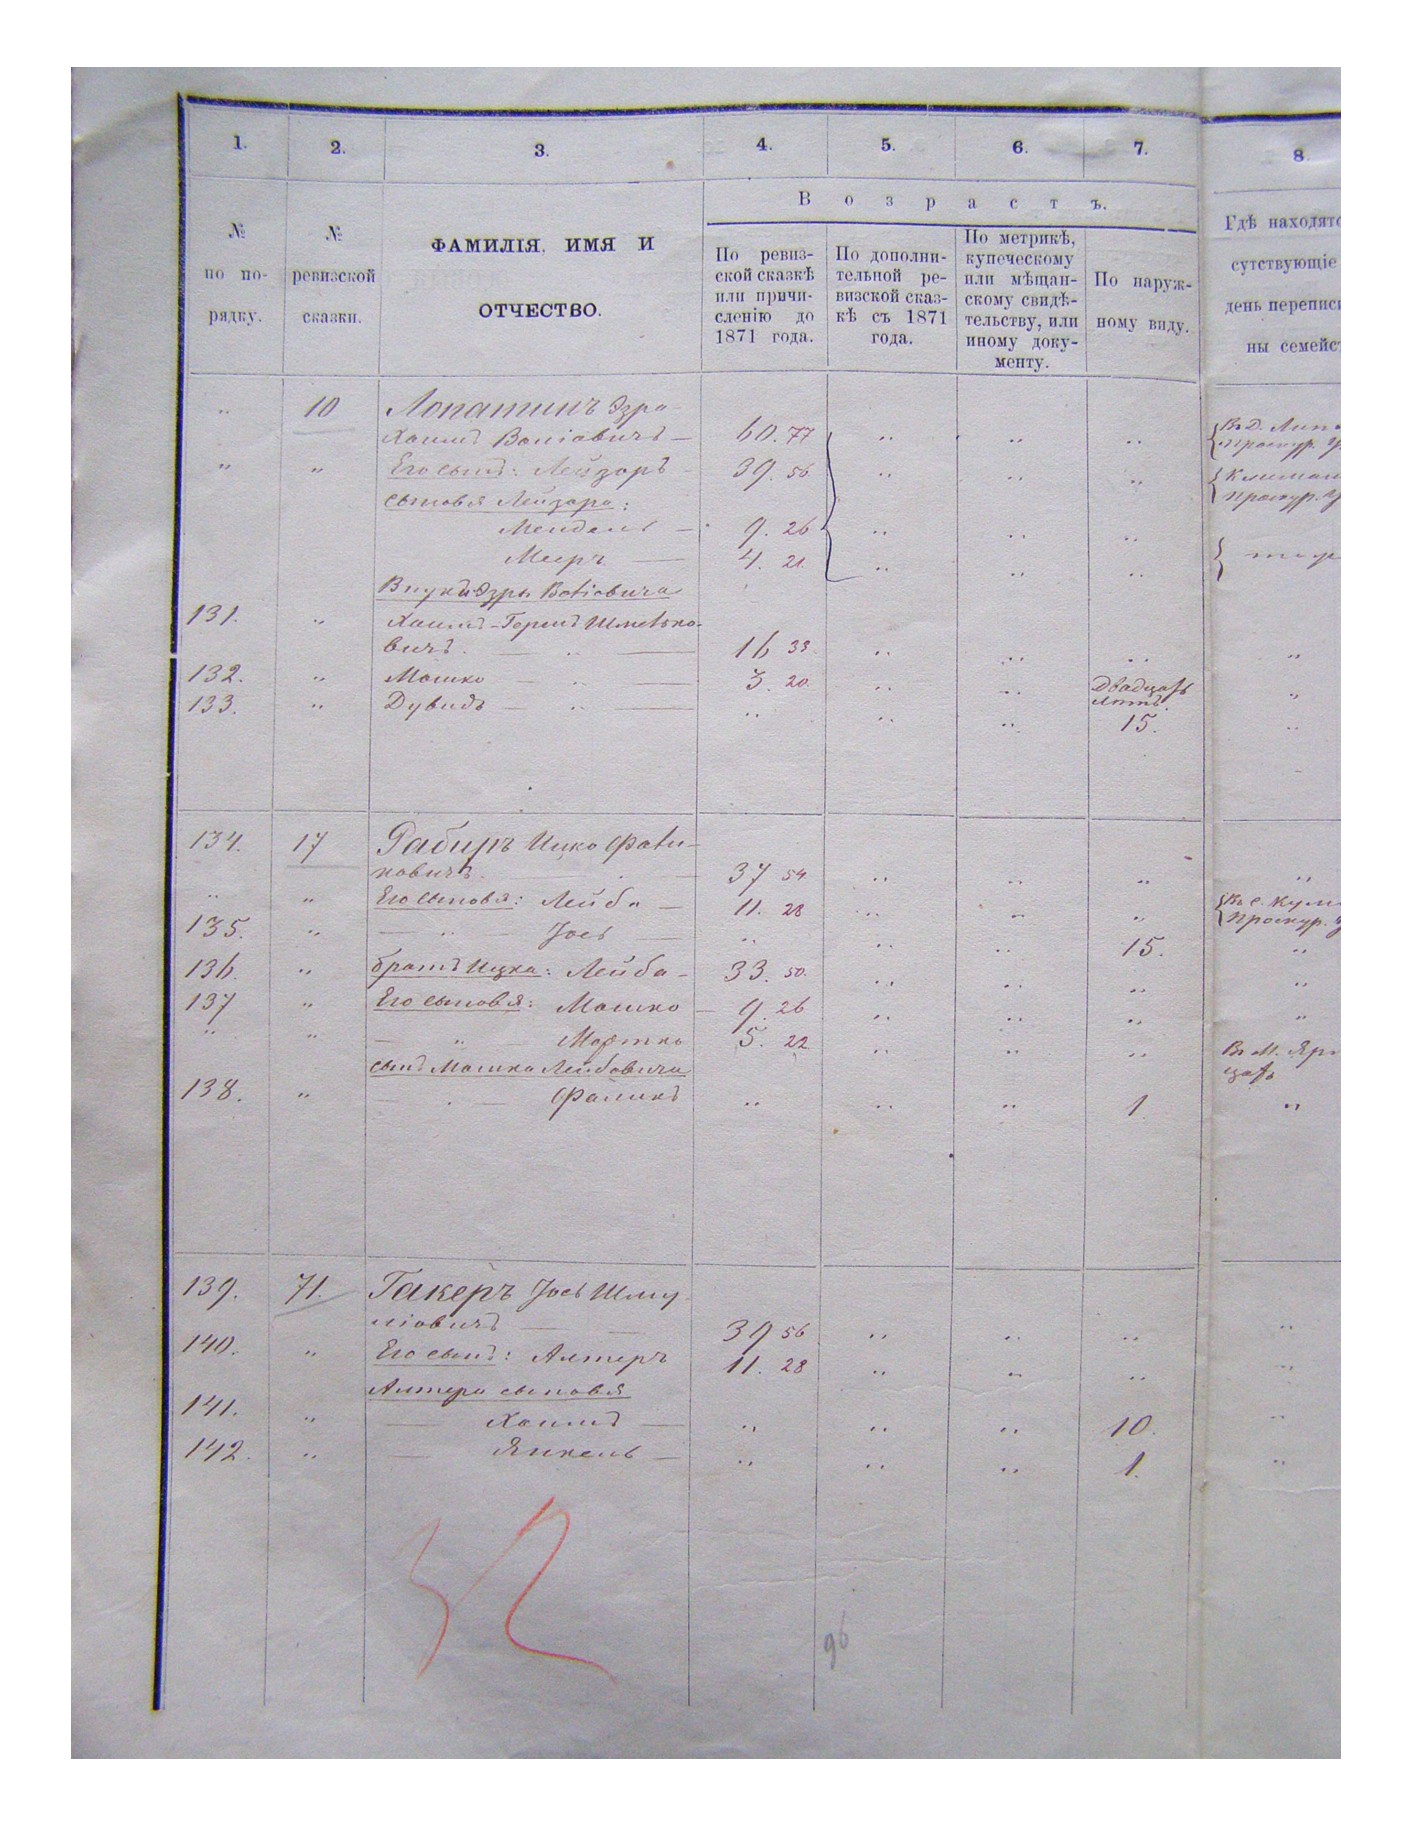 1. 2. 3. 4. 5. 6. 7. 8.
В о з р а с т ъ.
№ по по- рядку.
№ ревизской сказки.
ФАМИЛІЯ, ИМЯ И
ОТЧЕСТВО.
По ревиз-
ской сказкѣ
или причи-
сленію до
1871 года.
По дополни-
тельной ре-
визской сказ-
кѣ съ 1871
года.
По метрикѣ,
купеческому
или мѣщан-
скому свидѣ-
тельству, или
иному доку-
менту.
По наруж-
ному виду.
Гдѣ находятс
сутствующіе
день переписи
ны семейст
„ 10 Лопатинъ Эзра-
Хаимъ Волiовичъ — 60. 77 „ „ „ Въ Д.
Проскур. у.
„ „ Его сынъ: Лейзоръ 39. 56 „ „ „
Проскур. у
сыновья Лейзора:
Мендель — 9. 26 „ „ „
Мееръ — 4. 21. „ „ „
Внуки Эзры
131. „ Хаимъ-Гершъ Шмелько-
вичъ. — „ — 16 33 „ „ „ „
132. „ Мошко — „ — 3. 20. „ „ Двадцать „
лѣтъ.
133. „ Дувидъ — „ — „ „ „ 15. „
134. 17 Габиръ Ицко Фали-
ковичъ. — 37 54 „ „ „ „
„ „ Его сыновья: Лейба — 11. 28 „ „ „ Въ с.
Проскур. у
135. „ — „ — Іось — „ „ „ 15. „
136. „ братъ Ицка: Лейба — 33. 50. „ „ „ „
137 „ Его сыновья: Мошко — 9. 26 „ „ „ „
„ „ — „ — Мортко 5. 22 „ „ „ Въ М.
сынъ Мошка Лейбовича
138. „ — „ — Фаликъ „ „ „ 1 „
139. 71. Гакеръ Іось Шму
ліовичъ — 39 56 „ „ „ „
140. „ Его сынъ: Алтеръ 11. 28 „ „ „ „
Алтера сыновья
141. „ — Хаимъ — „ „ „ 10. „
142. „ — Янкель — „ „ „ 1. „
96